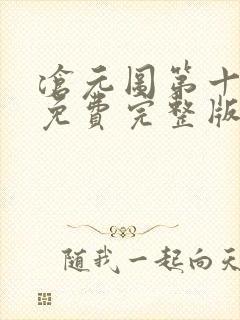 滄元圖第十
免費完整版
随我一起向天